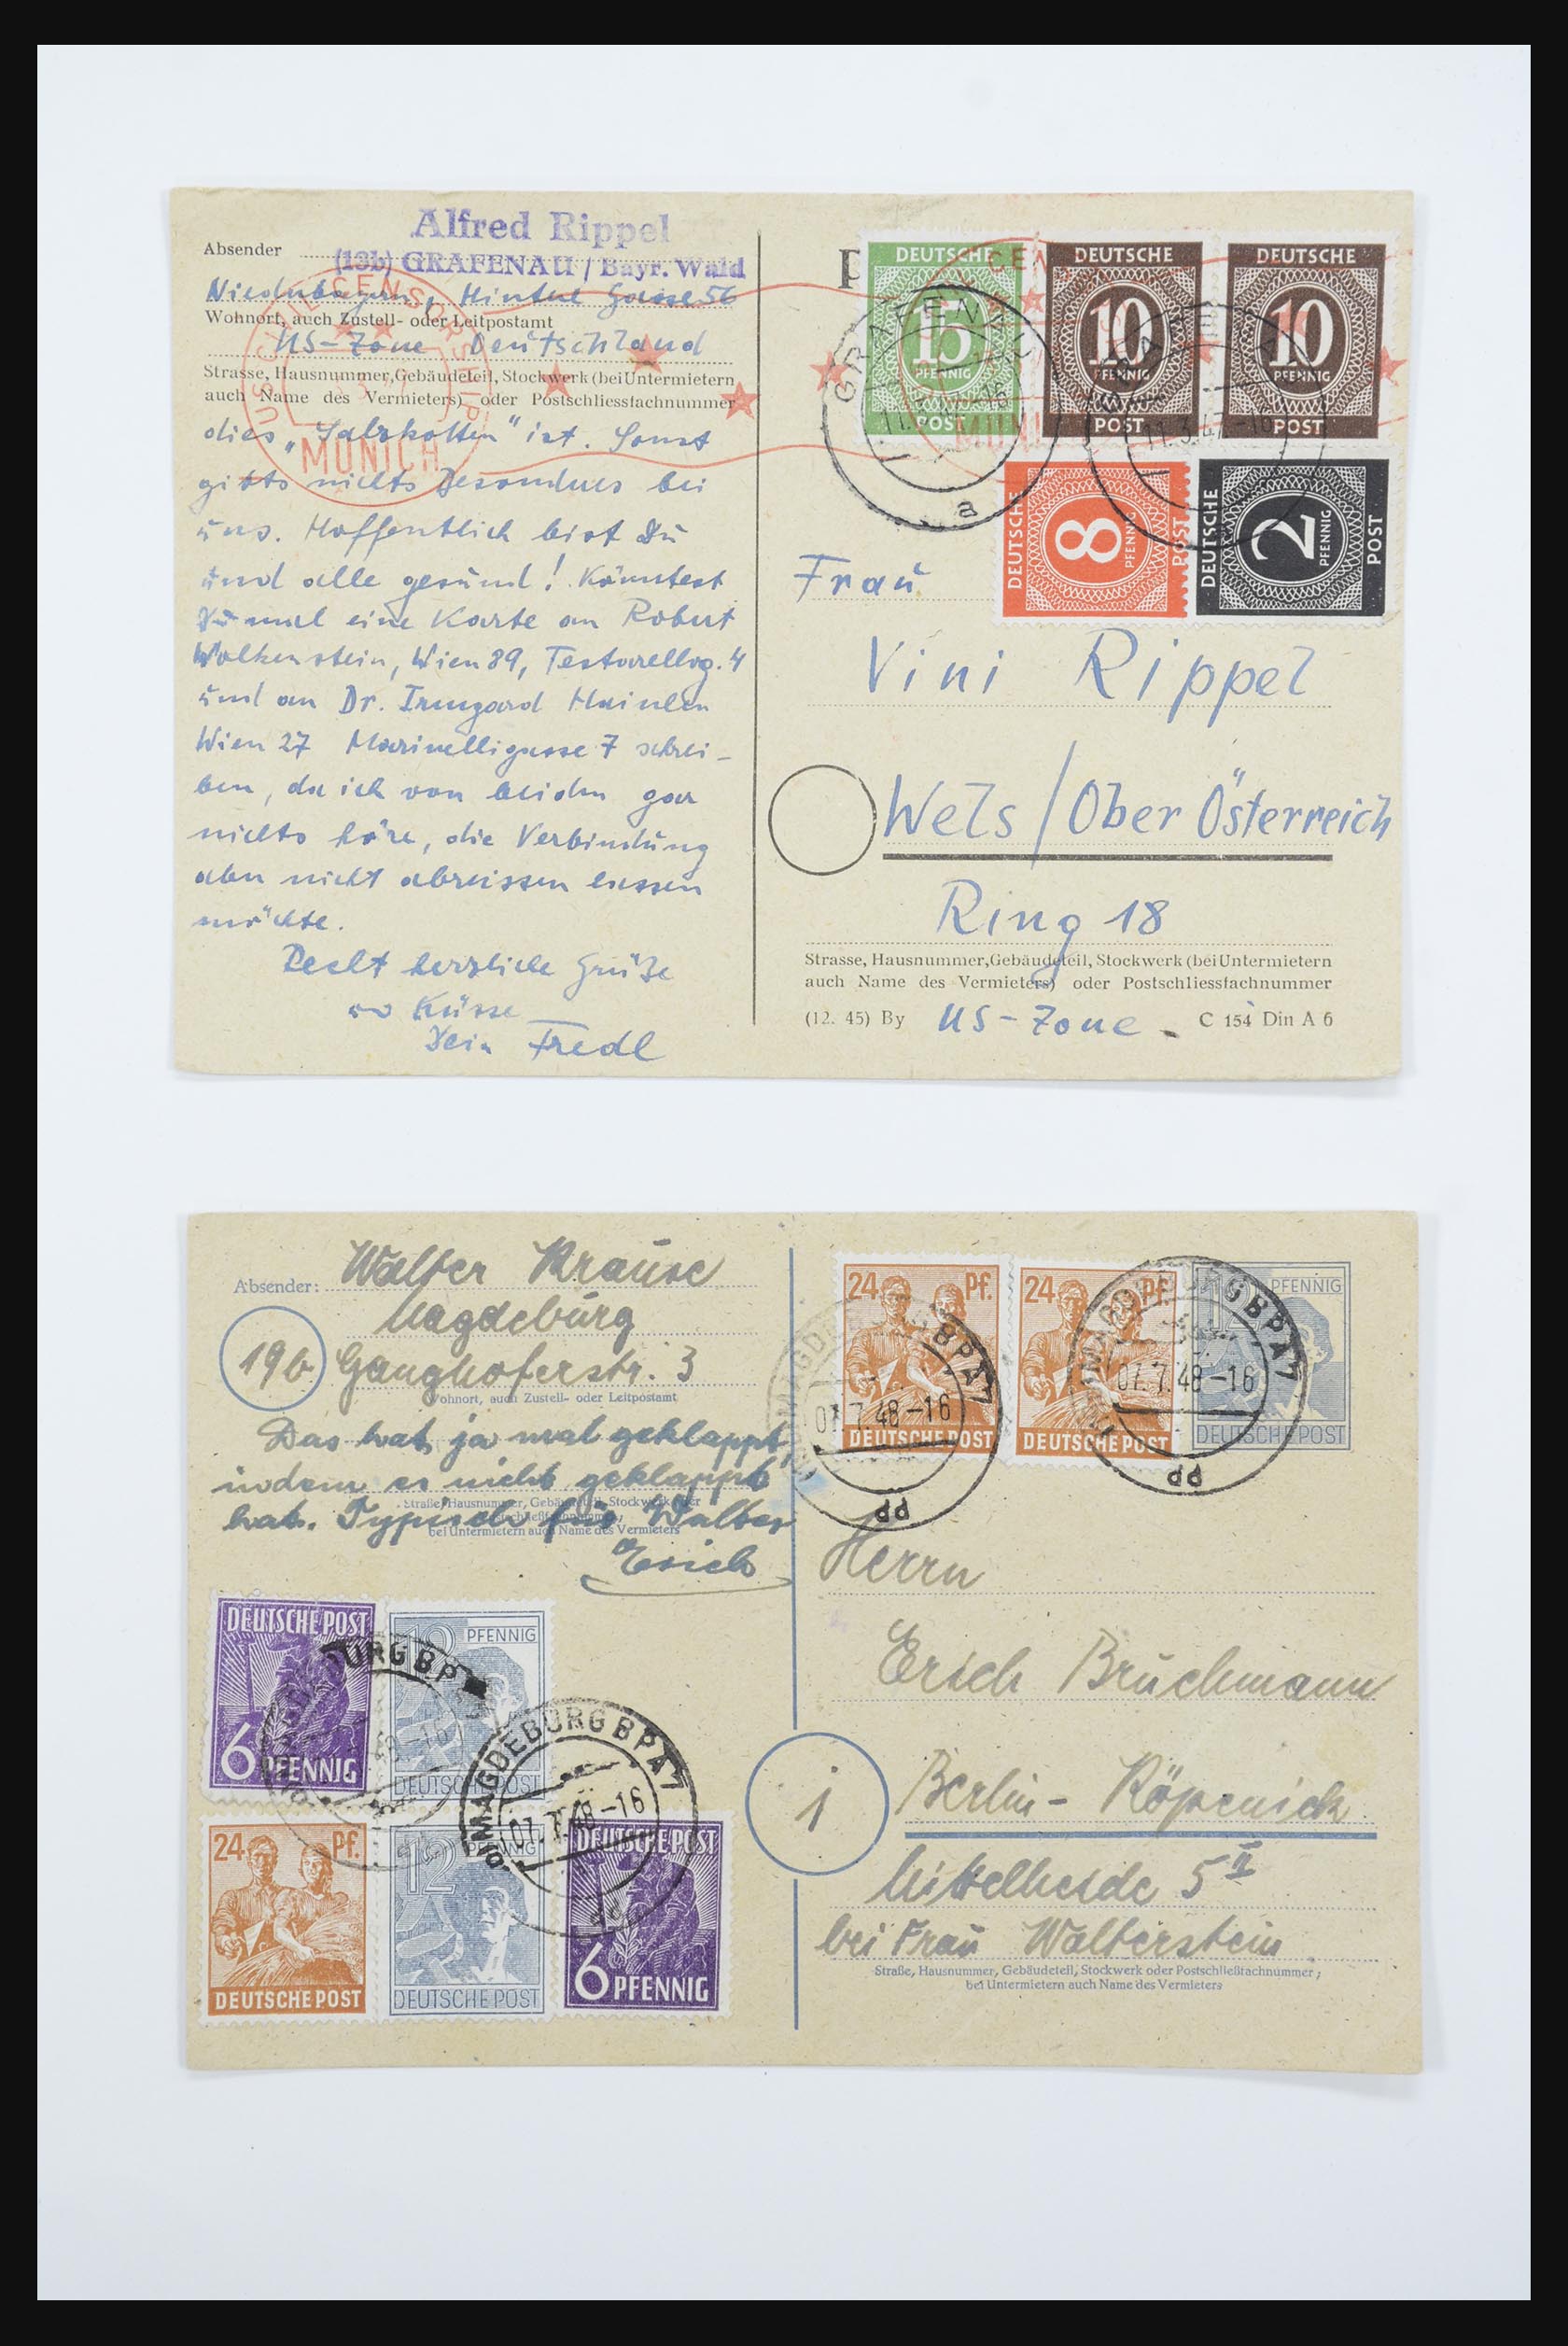 Alfred Rippel
Absender
(13b) GRAFENAU / Bayr. Wald
Niederbayern, Hintere Gasse 56
Wohnort, auch Zustell- oder Leitpostamt
US-Zone Deutschland
Strasse, Hausnummer, Gebäudeteil, Stockwerk (bei Untermietern
auch Name des Vermieters) oder Postschliessfachnummer
US CIVIL CENSORSHIP
MUNICH
dies „Salzkotten" ist. Sonst
gibts nichts Besonderes bei
uns. Hoffentlich bist Du
und alle gesund! Könntest
Du mal eine Karte an Robert
Wolkenstein, Wien 89, Testarellog. 4
und an Dr. Irmgard Hainlen
Wien 27 Marinelligasse 7 schrei-
ben, da ich von beiden gar
nichts höre, die Verbindung
aber nicht abreissen lassen
möchte.
Recht herzliche Grüße
Küsse
Dein Fredl
P
DEUTSCHE
15
PFENNIG
POST
DEUTSCHE
10
PFENNIG
POST
DEUTSCHE
10
PFENNIG
POST
DEUTSCHE
8
PFENNIG
POST
DEUTSCHE
2
PFENNIG
POST
GRAFENAU
a
11.3.47-16
Frau
Vini Rippel
Wels / Ober Österreich
Ring 18
Strasse, Hausnummer, Gebäudeteil, Stockwerk (bei Untermietern
auch Name des Vermieters) oder Postschliessfachnummer
(12. 45) By US-Zone. C 154 Din A 6
Absender: Walter Krause
Magdeburg
19b Ganghoferstr. 3
Wohnort, auch Zustell- oder Leitpostamt
Das hat ja mal geklappt,
indem es nicht geklappt
Straße, Hausnummer, Gebäudeteil, Stockwerk oder
hat. Typisch für Walter
bei Untermietern auch Name des Vermieters
Erich
24 Pf.
DEUTSCHE POST
24 Pf.
DEUTSCHE POST
12 PFENNIG
DEUTSCHE POST
MAGDEBURG BPA 7
07.7.48-16
pp
MAGDEBURG BPA 7
07.7.48-16
pp
DEUTSCHE POST
6 PFENNIG
12 PFENNIG
DEUTSCHE POST
24 Pf.
DEUTSCHE POST
12 PFENNIG
DEUTSCHE POST
DEUTSCHE POST
6 PFENNIG
MAGDEBURG BPA 7
07.7.48-16
pp
Herrn
Erich Bruchmann
1 Berlin-Köpenick
Mittelheide 5 II
bei Frau Walterstein
Straße, Hausnummer, Gebäudeteil, Stockwerk oder Postschließfachnummer;
bei Untermietern auch Name des Vermieters